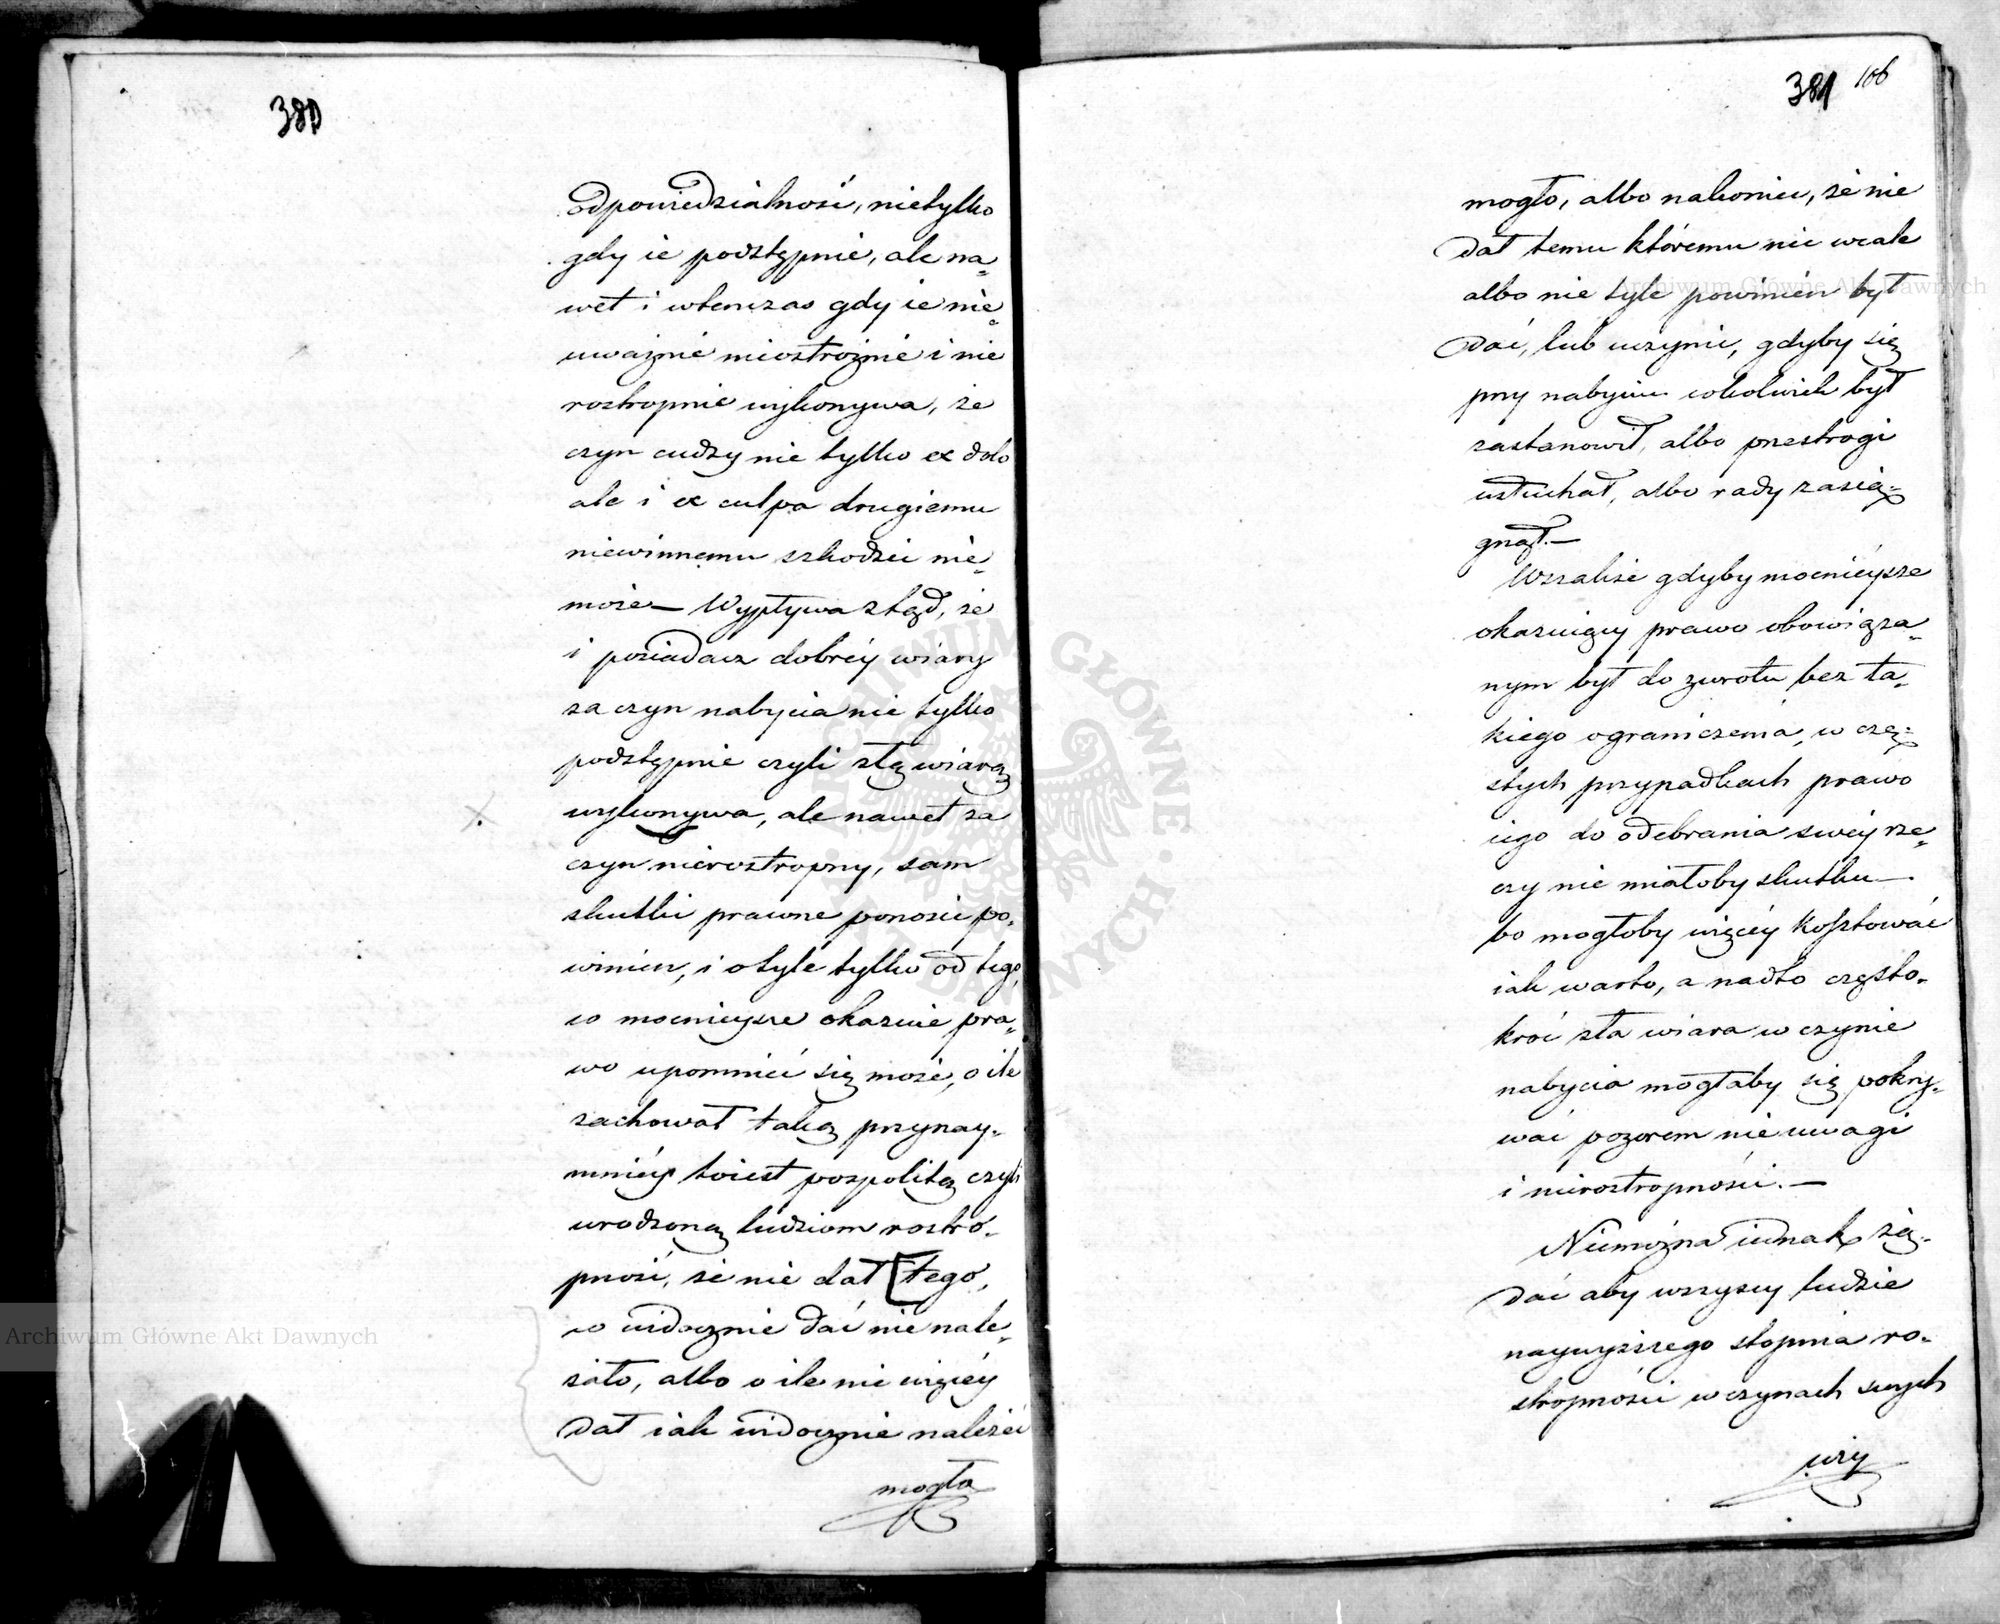 380
odpowiedzialność, nietylko
gdy ie podstępnie, ale na=
wet i wtenczas gdy ie nie=
uważnie nieostrożnie i nie
rostropnie wykonywa, że
czyn cudzy nie tylko ex dolo
ale i ex culpa drugiemu
niewinnemu szkodzić nie=
może — Wypływa ztąd, że
i posiadacz dobréy wiary
za czyn nabycia nie tylko
podstępnie czyli złą wiarą
wykonywa, ale nawet za
czyn nierostropny, sam
skutki prawne ponosić po=
winien, i o tyle tylko od tego,
co mocnieysze okazuie pra=
wo upomnieć się może, o ile
zachował taką przynay=
mniéy toiest pospolitą czyli
urodzoną ludziom rostro=
pność, że nie dał [tego,
co widocznie dać nie nale=
żało, albo o ile nie więcéy
dał iak widocznie należeć
mogło
381 106
mogło, albo nakoniec, że nie
dał temu któremu nic wcale
albo nie tyle powinien był
dać, lub uczynić, gdyby się
przy nabyciu cokolwiek był
zastanowił, albo przestrogi
usłuchał, albo rady zasią=
gnął. —
Wszakże gdyby mocniéysze
okazuiący prawo obowiąza=
nym był do zwrotu bez ta=
kiego ograniczenia, w czę=
stych przypadkach prawo
iego do odebrania swéy rze=
czy nie miałoby skutku —
bo mogłoby więcéy kosztować
iak warto, a nadto często=
kroć zła wiara w czynie
nabycia mogłaby się pokry=
wać pozorem nieuwagi
i nierostropności. —
Niemożna iednak żą=
dać aby wszyscy ludzie
naywyższego stopnia ro=
stropności w czynach swych
uży
Archiwum Główne Akt Dawnych
Archiwum Główne Akt Dawnych
ARCHIWUM GŁÓWNE · AKT DAWNYCH ·